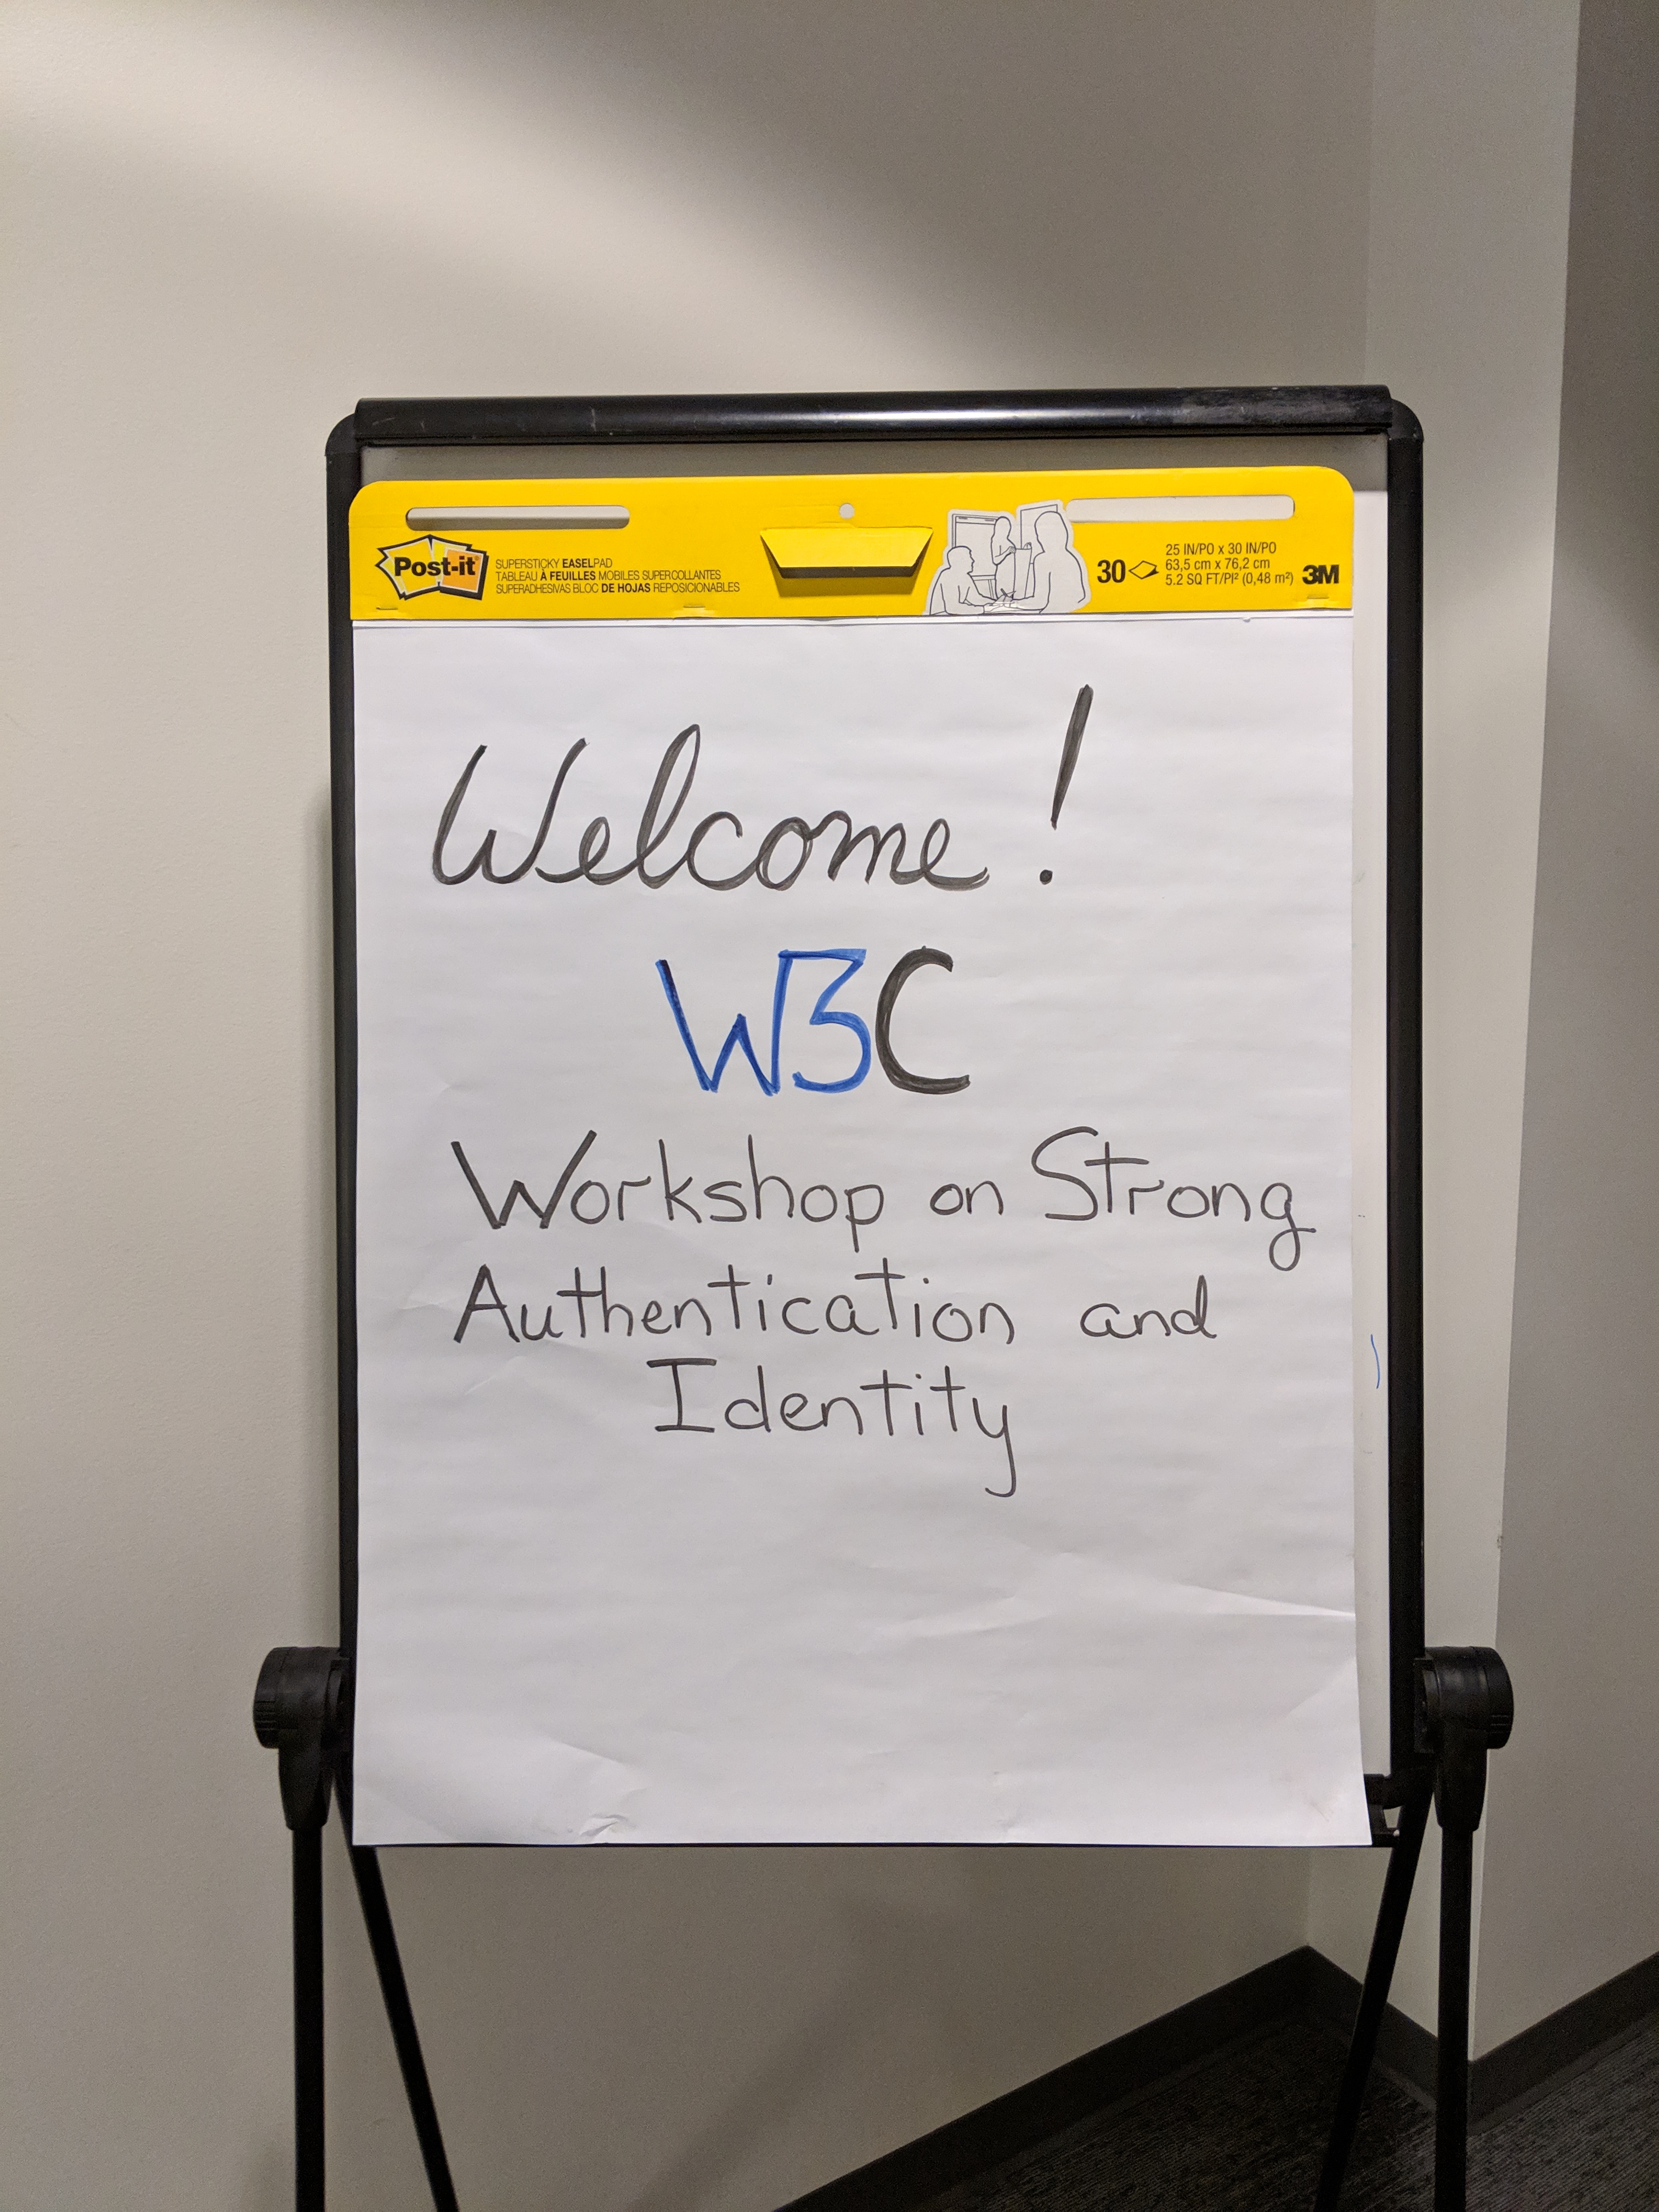 Post-it
SUPERSTICKY EASELPAD
TABLEAU À FEUILLES MOBILES SUPERCOLLANTES
SUPERADHESIVAS BLOC DE HOJAS REPOSICIONABLES
30
25 IN/PO x 30 IN/PO
63,5 cm x 76,2 cm
5.2 SQ FT/PI² (0,48 m²)
3M
Welcome!
W3C
Workshop on Strong
Authentication and
Identity